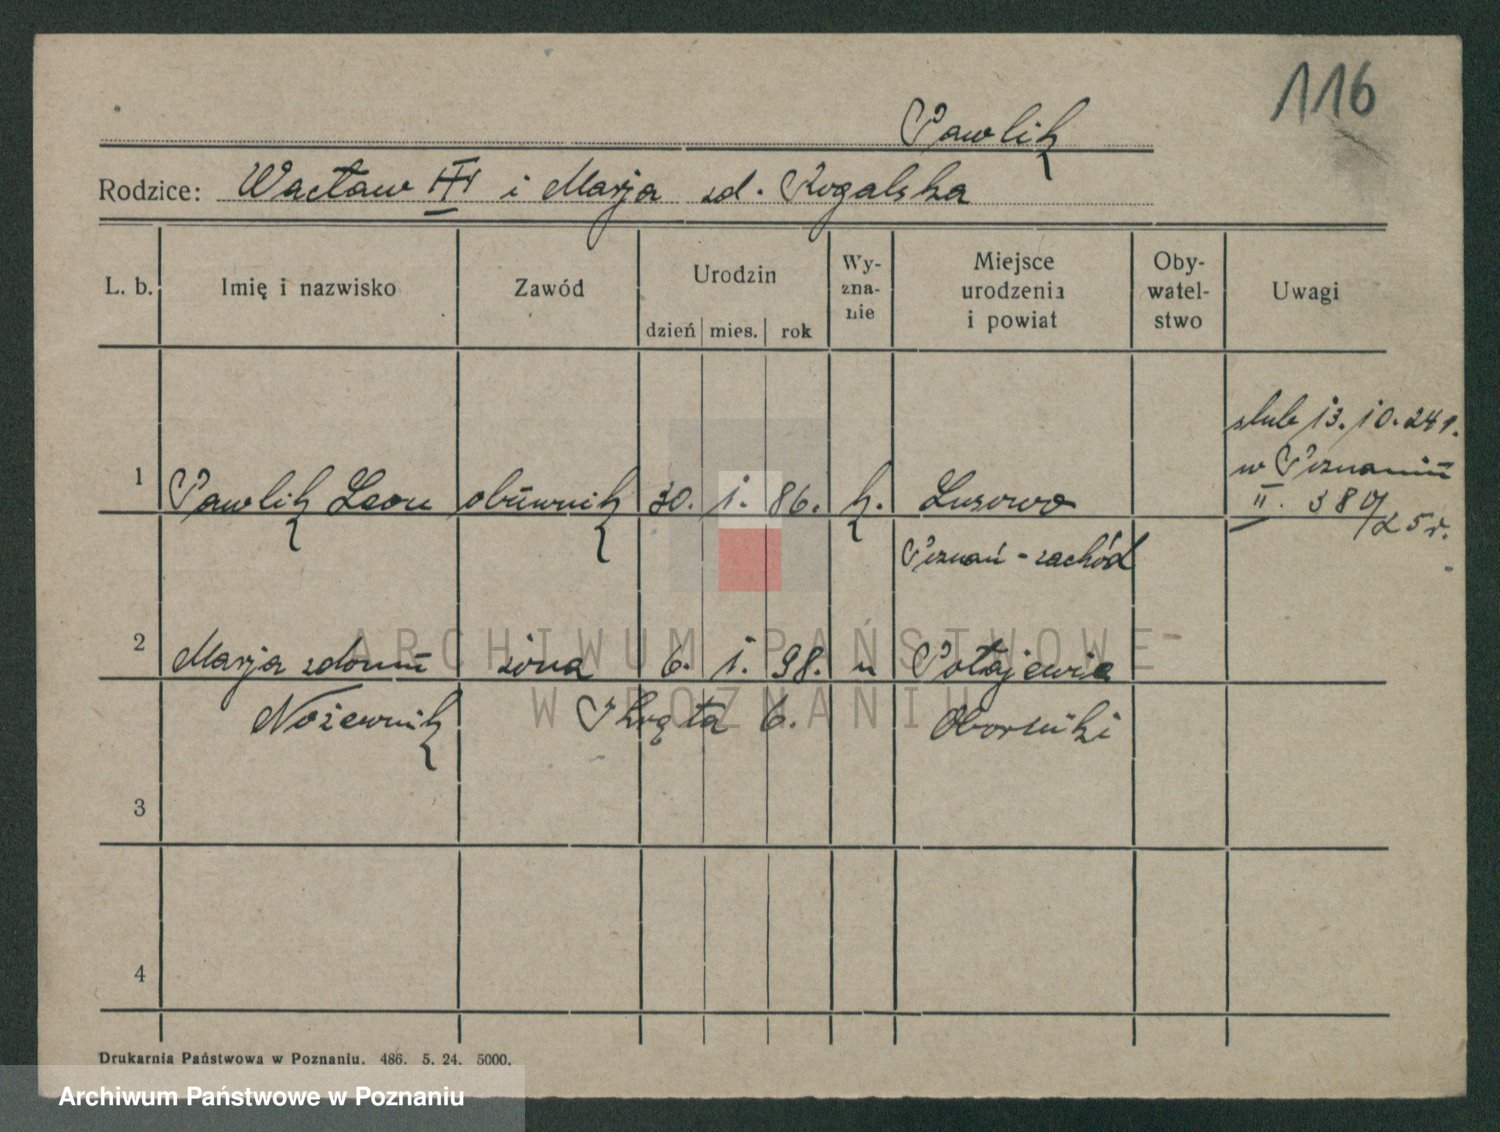 116
Pawlik
Rodzice: Wacław III i Marja zd. Rogalska
L. b.
Imię i nazwisko
Zawód
Urodzin
dzień mies. rok
Wy-
zna-
nie
Miejsce
urodzenia
i powiat
Oby-
watel-
stwo
Uwagi
1 Pawlik Leon obuwnik 30. 1. 86. k. Lusowo
Poznań - zachód
ślub 13. 10. 24 r.
w Poznaniu
II. 380/25 r.
2 Marja zdomu żona 6. 1. 98. " Połajewie
Nożewnik Skręta 6. Oborniki
3
4
Drukarnia Państwowa w Poznaniu. 486. 5. 24. 5000.
ARCHIWUM PAŃSTWOWE
W POZNANIU
Archiwum Państwowe w Poznaniu